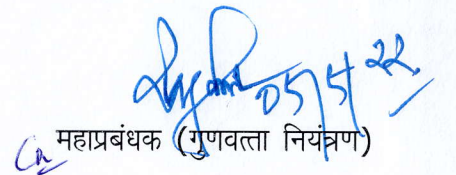 05/5/22
महाप्रबंधक (गुणवत्ता नियंत्रण)